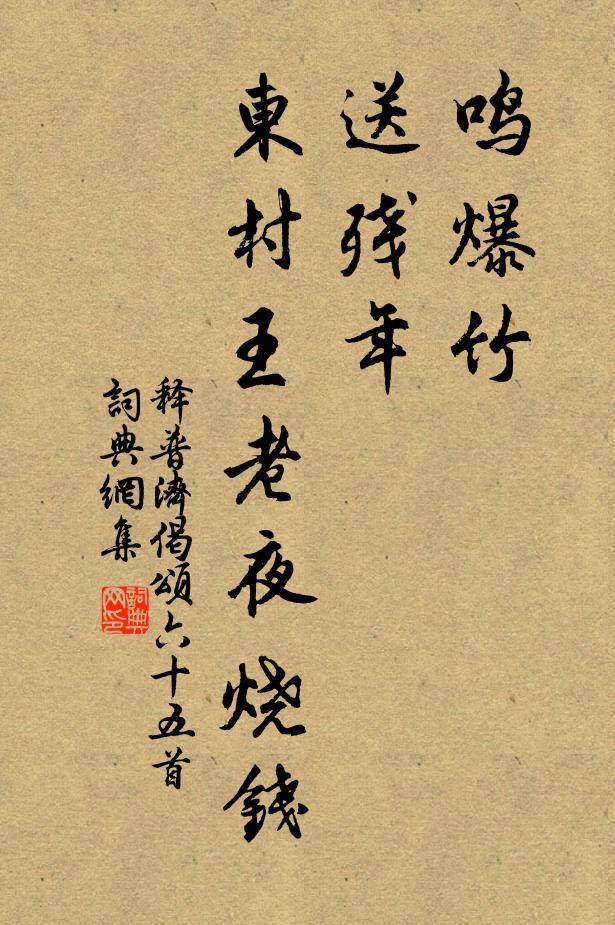 鸣爆竹
送残年
東村王老夜烧錢
释普濟偈頌六十五首
詞典網集
詞典
网印